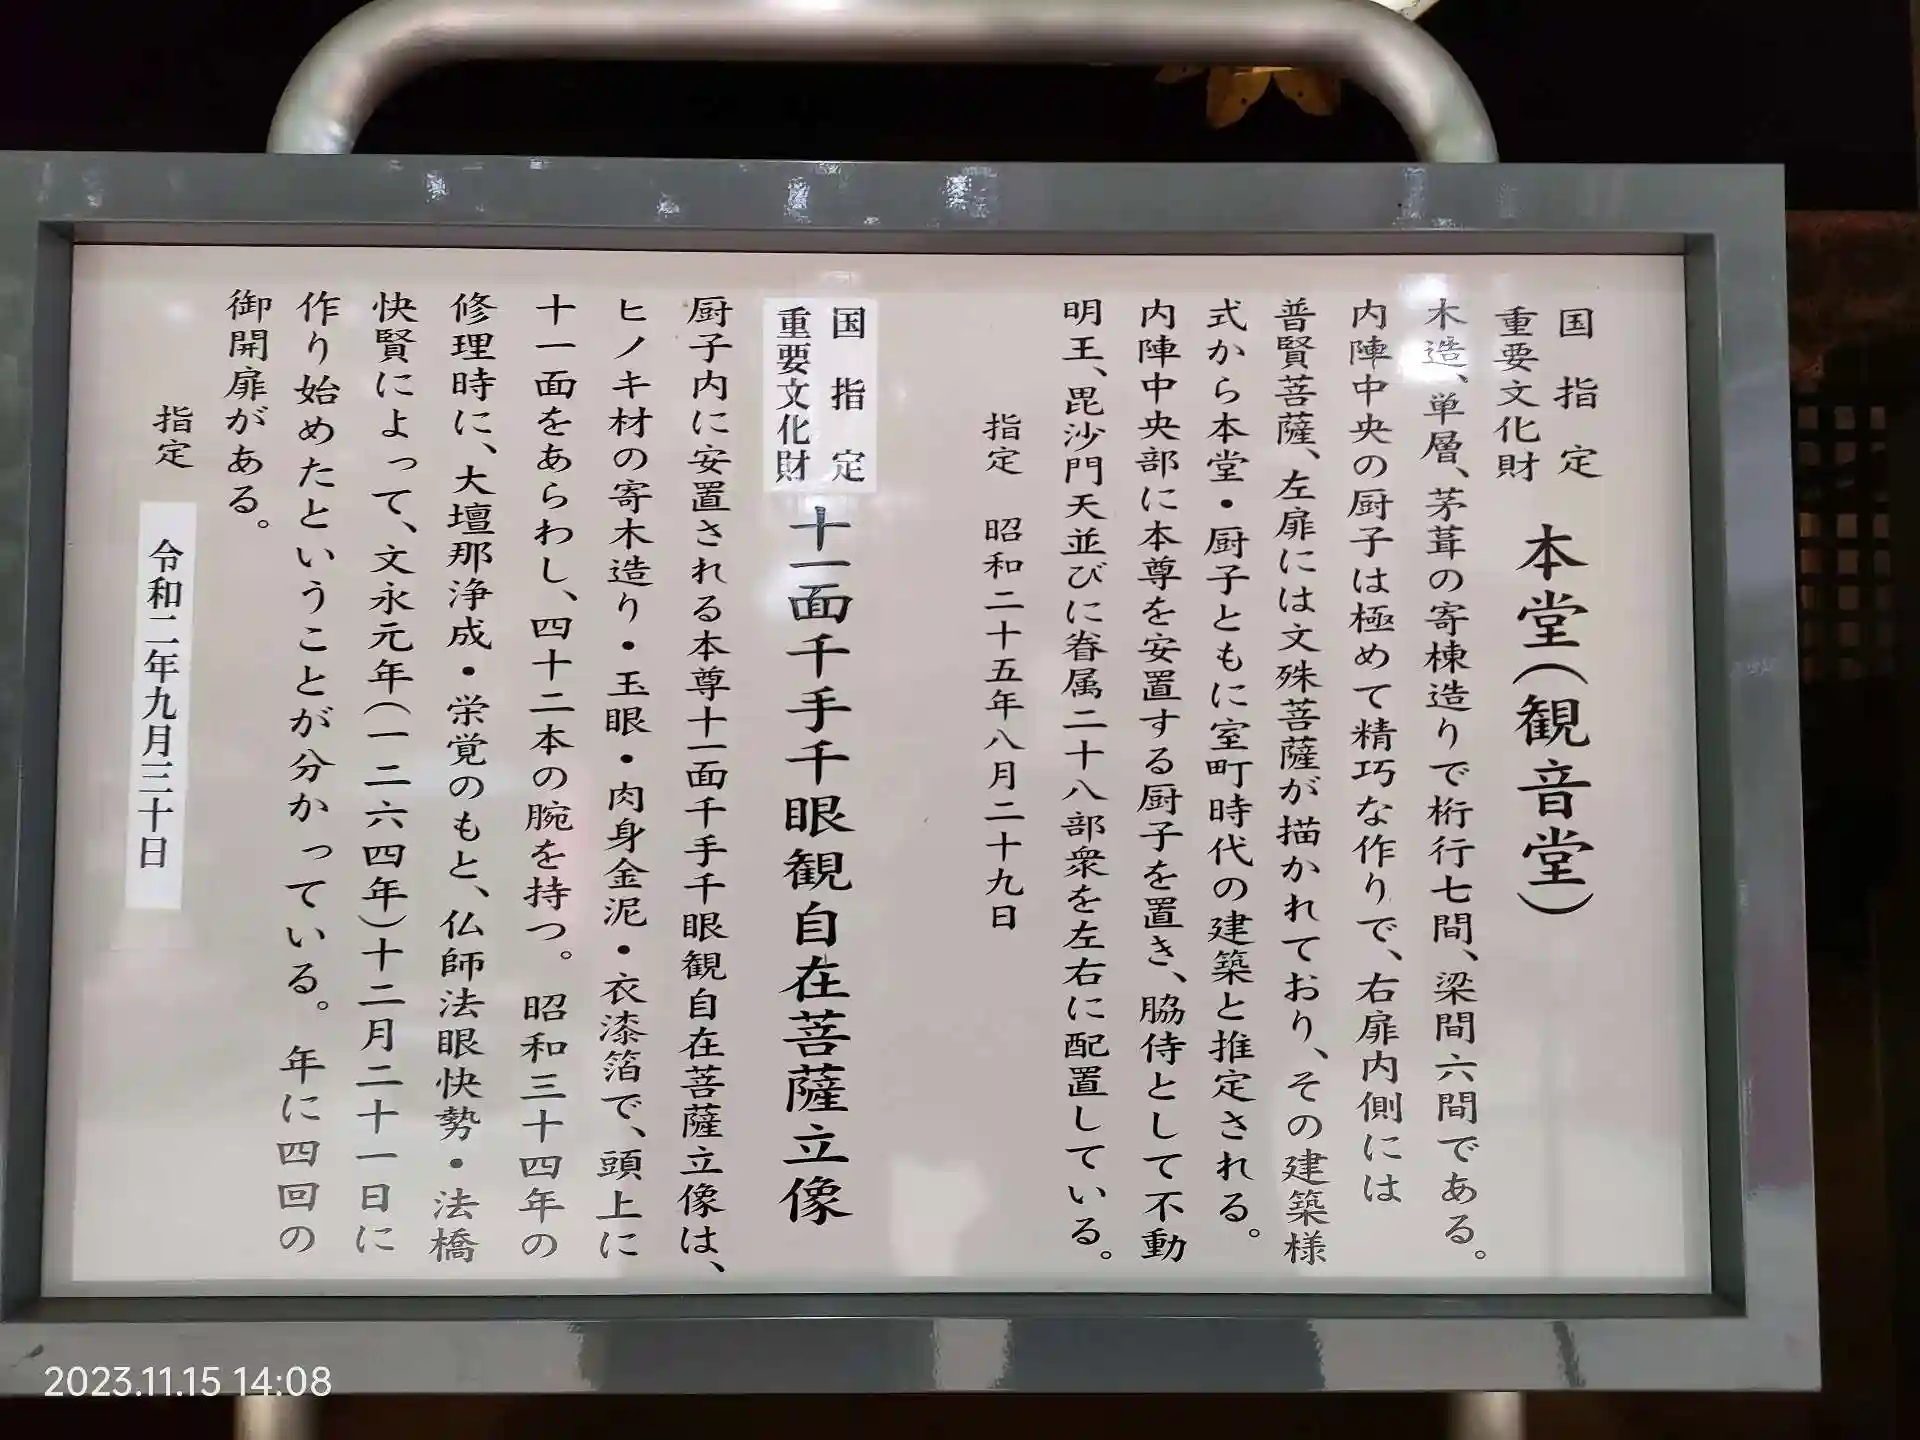 国指定
重要文化財
本堂(観音堂)
木造、単層、茅葺の寄棟造りで桁行七間、梁間六間である。
内陣中央の厨子は極めて精巧な作りで、右扉内側には
普賢菩薩、左扉には文殊菩薩が描かれており、その建築様
式から本堂・厨子ともに室町時代の建築と推定される。
内陣中央部に本尊を安置する厨子を置き、脇侍として不動
明王、毘沙門天並びに眷属二十八部衆を左右に配置している。
指定 昭和二十五年八月二十九日
国指定
重要文化財
十一面千手千眼観自在菩薩立像
厨子内に安置される本尊十一面千手千眼観自在菩薩立像は、
ヒノキ材の寄木造り・玉眼・肉身金泥・衣漆箔で、頭上に
十一面をあらわし、四十二本の腕を持つ。昭和三十四年の
修理時に、大壇那浄成・栄覚のもと、仏師法眼快勢・法橋
快賢によって、文永元年(一二六四年)十二月二十一日に
作り始めたということが分かっている。年に四回の
御開扉がある。
指定 令和二年九月三十日
2023.11.15 14:08